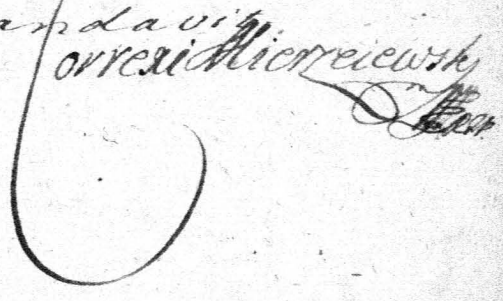 andavit
Correxi Mierzeiewsky